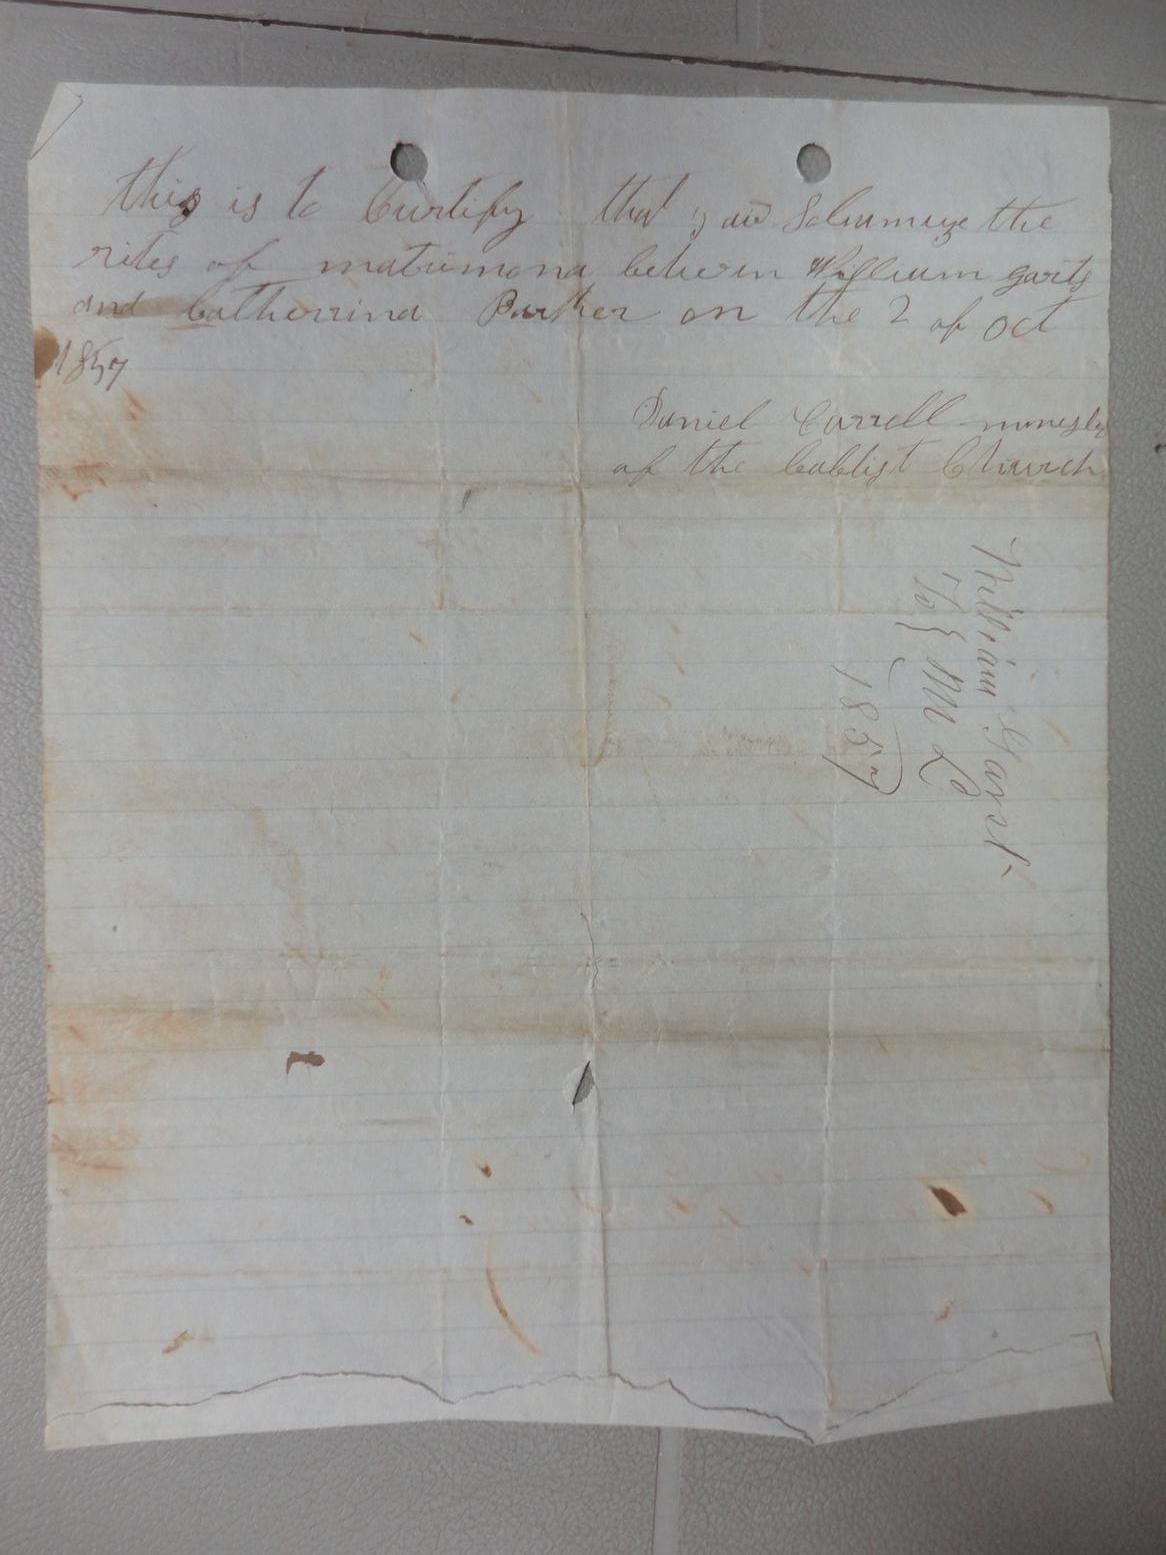 this is to Curtify that I did Solumnize the
rites of matrimona between William garts
and Catherrina Parker on the 2 of Oct
1857
Daniel Carrell minester
of the babtist Church
William Garst
To } M L
1857